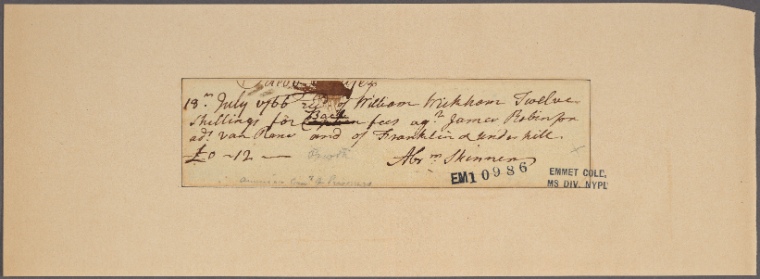 13th July 1766 Recd of William Wickham Twelve
Shillings for Back fees agt James Robinson
ads Van Rane and of Franklin & Underhill.
£0 - 12 —
Abrm Skinner
EM10986
EMMET COLL,
MS DIV. NYPL
American Comy of Prisoners